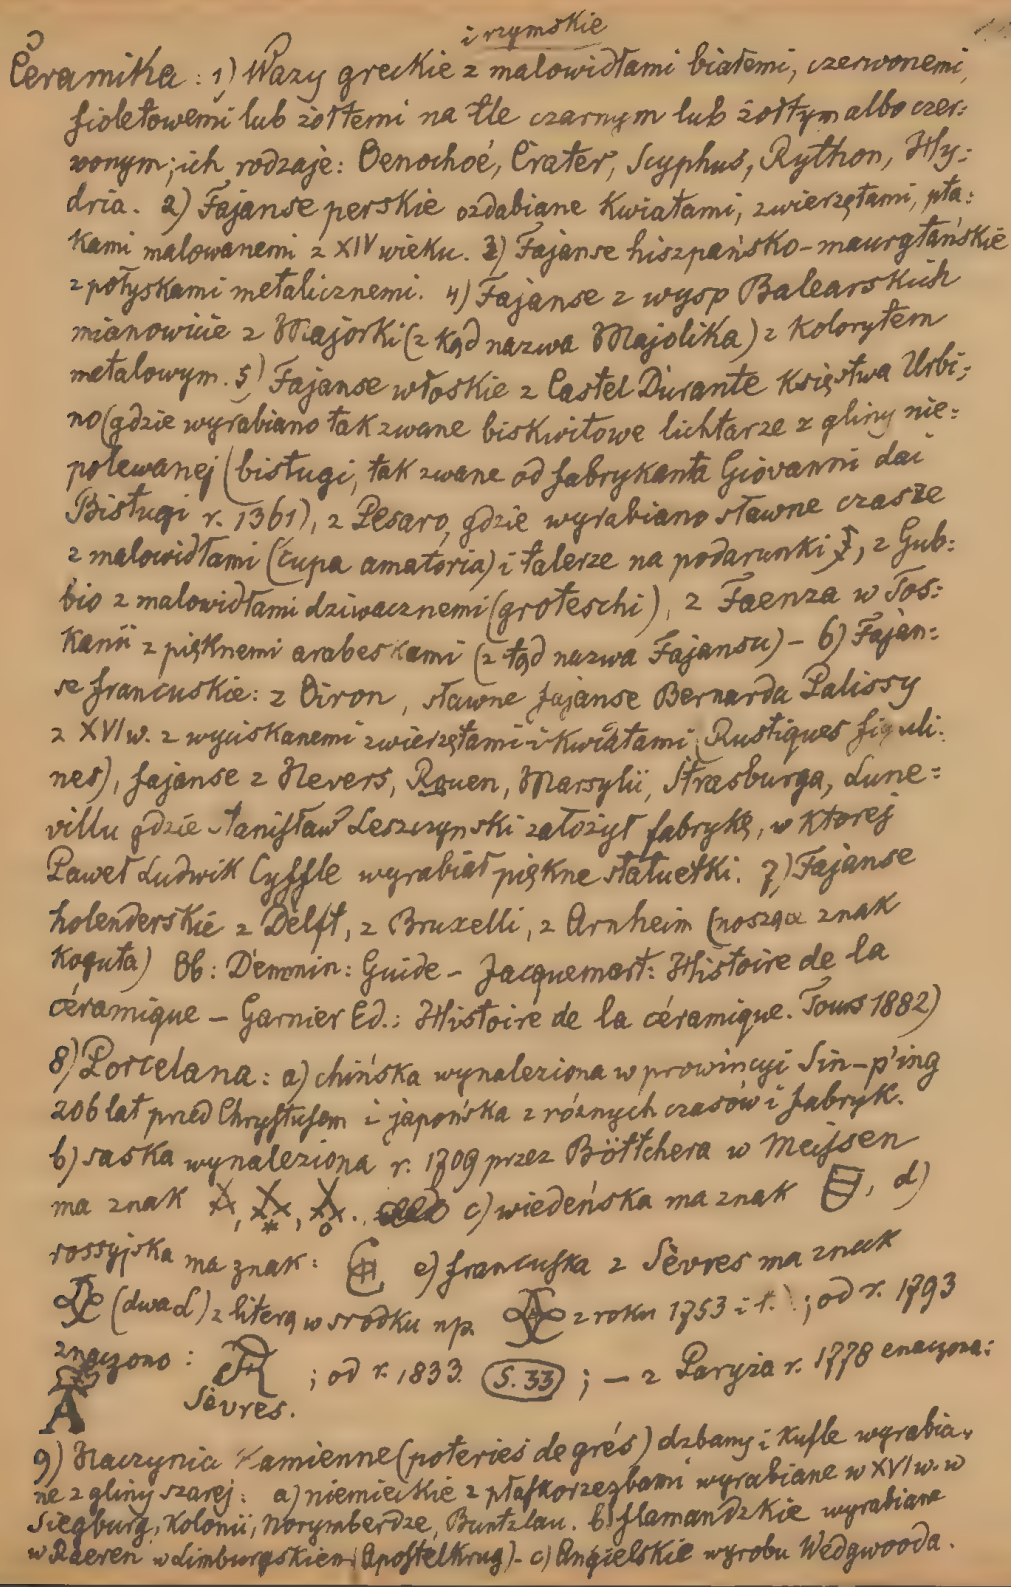 i rzymskie
Ceramika: 1) Wazy greckie z malowidłami białemi, czerwonemi,
fioletowemi lub żółtemi na tle czarnym lub żółtym albo czer-
wonym; ich rodzaje: Oenochoé, Crater, Scyphus, Rython, Hy-
dria. 2) Fajanse perskie ozdabiane kwiatami, zwierzętami, pta-
kami malowanemi z XIV wieku. 3) Fajanse hiszpańsko-maurytańskie
z połyskami metalicznemi. 4) Fajanse z wysp Balearskich
mianowicie z Majorki (z kąd nazwa Majolika) z kolorytem
metalowym. 5) Fajanse włoskie z Castel Durante księstwa Urbi-
no (gdzie wyrabiano tak zwane biskwitowe lichtarze z gliny nie-
polewanej (bistugi, tak zwane od fabrykanta Giovanni dai
Bistugi r. 1361), z Pesaro, gdzie wyrabiano sławne czasze
z malowidłami (cupa amatoria) i talerze na podarunki, z Gub-
bio z malowidłami dziwacznemi (groteschi), z Faenza w Tos-
kanii z pięknemi arabeskami (z tąd nazwa Fajansu) - 6) Fajan-
se francuskie: z Oiron, sławne fajanse Bernarda Palissy
z XVI w. z wyciskanemi zwierzętami i kwiatami (Rustiques figuli-
nes), fajanse z Nevers, Rouen, Marsylii, Strasburga, Lune-
villu gdzie Stanisław Leszczynski założył fabrykę, w ktorej
Paweł Ludwik Cyffle wyrabiał piękne statuetki. 7) Fajanse
holenderskie z Delft, z Bruxelli, z Arnheim (nosząca znak
koguta) Ob: Demmin: Guide - Jacquemart: Histoire de la
céramique - Garnier Ed.: Histoire de la céramique. Tours 1882)
8) Porcelana: a) chińska wynaleziona w prowincyi Sin-p'ing
206 lat przed Chrystusem i japońska z różnych czasów i fabryk.
b) saska wynaleziona r. 1709 przez Böttchera w Mejsen
ma znak c) wiedeńska ma znak , d)
rossyjska ma znak: e) francuska z Sèvres ma znak
(dwa L) z literą w srodku np. z roku 1753 i t. ; od r. 1793
znaczono: ; od r. 1833. S. 33 ; - z Paryża r. 1778 znaczona:
Sèvres.
A
9) Naczynia kamienne (poteries de grés) dzbany i kufle wyrabia-
ne z gliny szarej: a) niemieckie z płaskorzeźbami wyrabiane w XVI w. w
Siegburg, Kolonii, Norymberdze, Buntzlau. b) flamandzkie wyrabiane
w Raeren w Limburgskiem (Apostelkrug) - c) Angielskie wyrobu Wedgwooda.